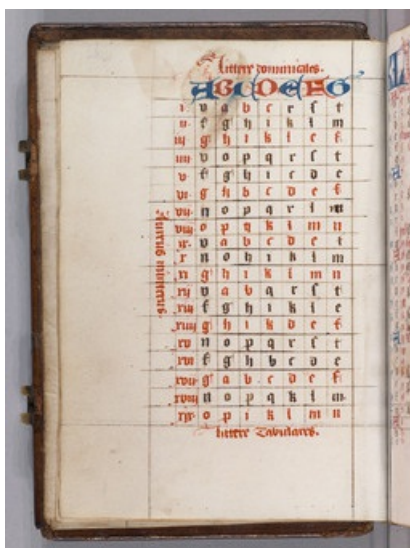 Littere dominicales.
A B C D E F G
i v a b c r s t
ii f g h i k l m
iij g h i k l e f
iiij v o p q r s t
v f g h i c d e
vi g h b c d e f
vij n o p q r l m
viij o p q k l m n
ix v a b c d e t
x n o h i k l m
xi g h i k l m n
xij v a b q r s t
xiij f g h i k l e
xiiij g h i k d e f
xv n o p q r s t
xvi f g h b c d e
xvij g a b c d e f
xviij n o p q k l m
xix o p i k l m n
Littere Tabulares.
Aureus numerus.